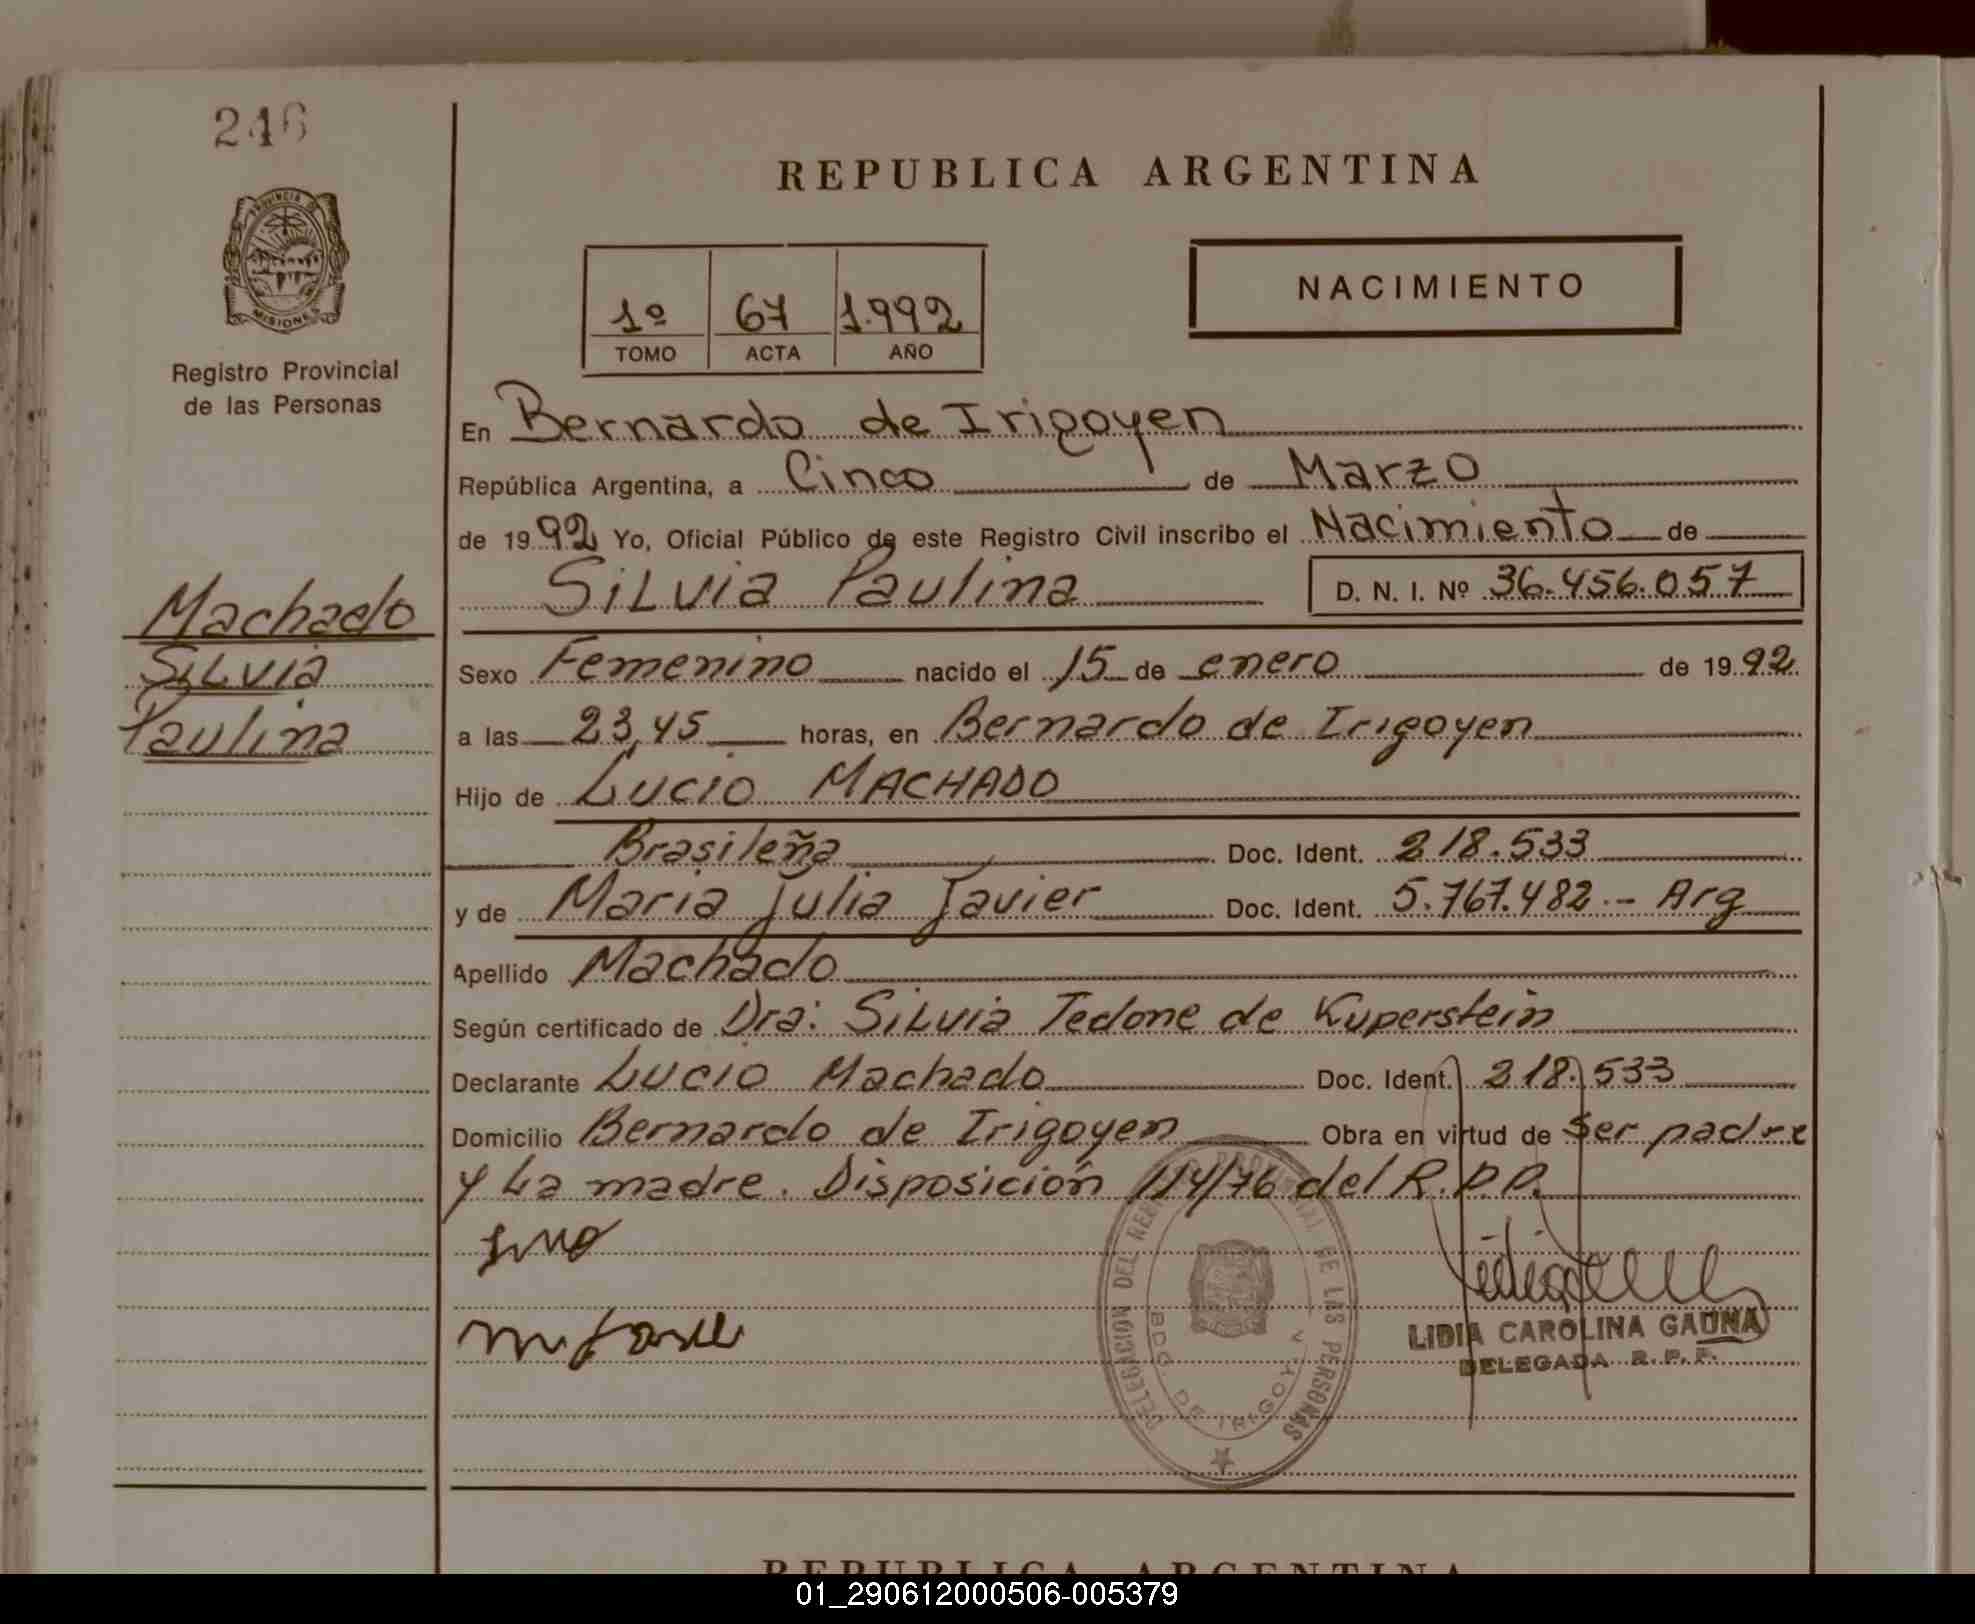 246
REPUBLICA ARGENTINA
PROVINCIA DE
MISIONES
NACIMIENTO
1º 67 1.992
TOMO ACTA AÑO
Registro Provincial
de las Personas
En Bernardo de Irigoyen
República Argentina, a Cinco de Marzo
de 1992 Yo, Oficial Público de este Registro Civil inscribo el Nacimiento de
Silvia Paulina D. N. I. Nº 36.456.057
Machado
Silvia
Paulina
Sexo Femenino nacido el 15 de enero de 1992
a las 23,45 horas, en Bernardo de Irigoyen
Hijo de Lucio MACHADO
Brasileña Doc. Ident. 218.533
y de Maria Julia Javier Doc. Ident. 5.767.482.- Arg
Apellido Machado
Según certificado de Dra: Silvia Tedone de Kuperstein
Declarante Lucio Machado Doc. Ident. 218.533
Domicilio Bernardo de Irigoyen Obra en virtud de Ser padre
y La madre. Disposición 114/76 del R.P.P.
DELEGACION DEL REGISTRO PROVINCIAL DE LAS PERSONAS
BDO. DE IRIGOYEN
LIDIA CAROLINA GAUNA
DELEGADA R.P.P.
REPUBLICA ARGENTINA
01_290612000506-005379